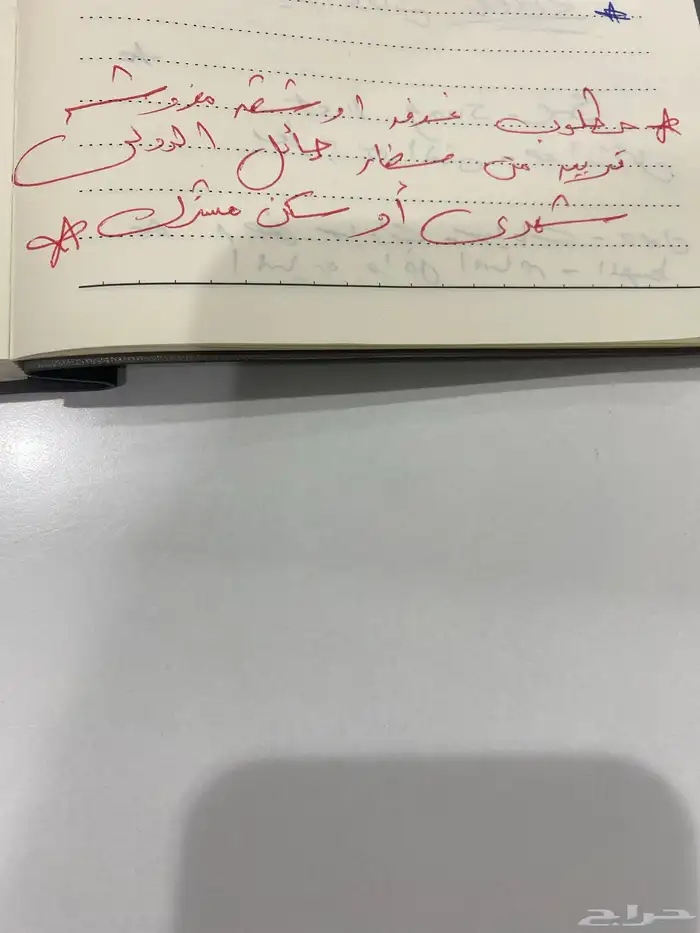 مطلوب غرفه او شقه مفروشه
قريبه من مطار حائل الدولي
شهري أو سكن مشترك
حراج